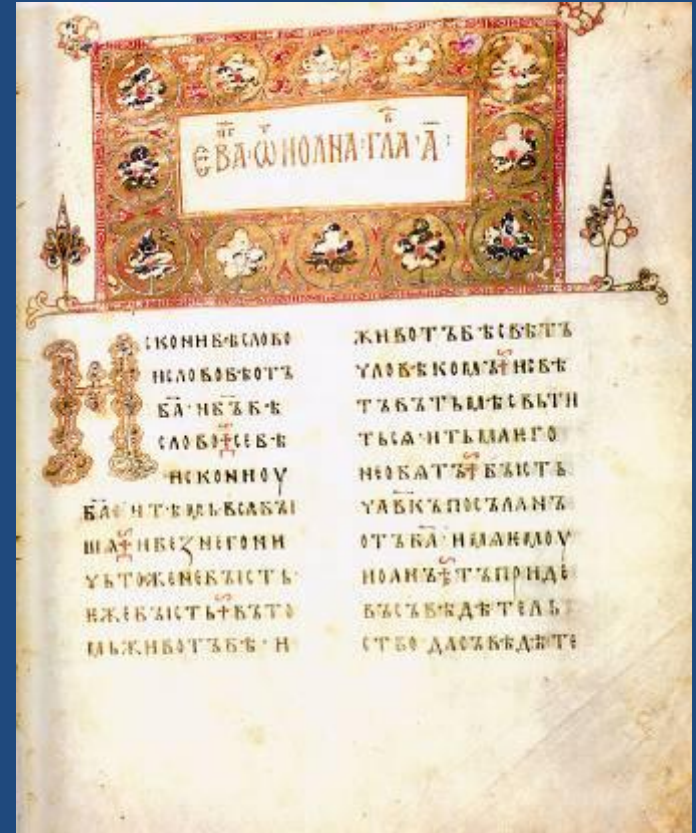 ЕВАⷢ҇ · Ѿ ИОАНА · ГЛАⷡ · А҃ :
ИСКОНИ БѢ СЛОВО
И СЛОВО БѢ ОТЪ
Б҃А · И Б҃Ъ БѢ
СЛОВО ⁘ СЕ БѢ
ИСКОНИ ОУ
Б҃А · И ТѢМЬ ВСѦ БЪІ
ШѦ ⁘ И БЕЗ НЕГО НИ
ЧЬТОЖЕ НЕ БЪІСТЬ ·
ЕЖЕ БЪІСТЬ ⁘ ВЪ ТО
МЬ ЖИВОТЪ БѢ · И
ЖИВОТЪ БѢ СВѢТЪ
ЧЛОВѢКОМЪ ⁘ И СВѢ
ТЪ ВЪ ТЬМѢ СВЬТИ
ТЬСѦ · И ТЬМА ѤГО
НЕ ОБѦТЪ ⁘ БЪІСТЬ
ЧЛ҃ВКЪ ПОСЪЛАНЪ
ОТЪ Б҃А · ИМѦ ѤМОУ
ИОАНЪ ⁘ ТЪ ПРИДЕ
ВЪ СЪВѢДѢТЕЛЬ
СТВО · ДА СЪВѢДѢТЕ